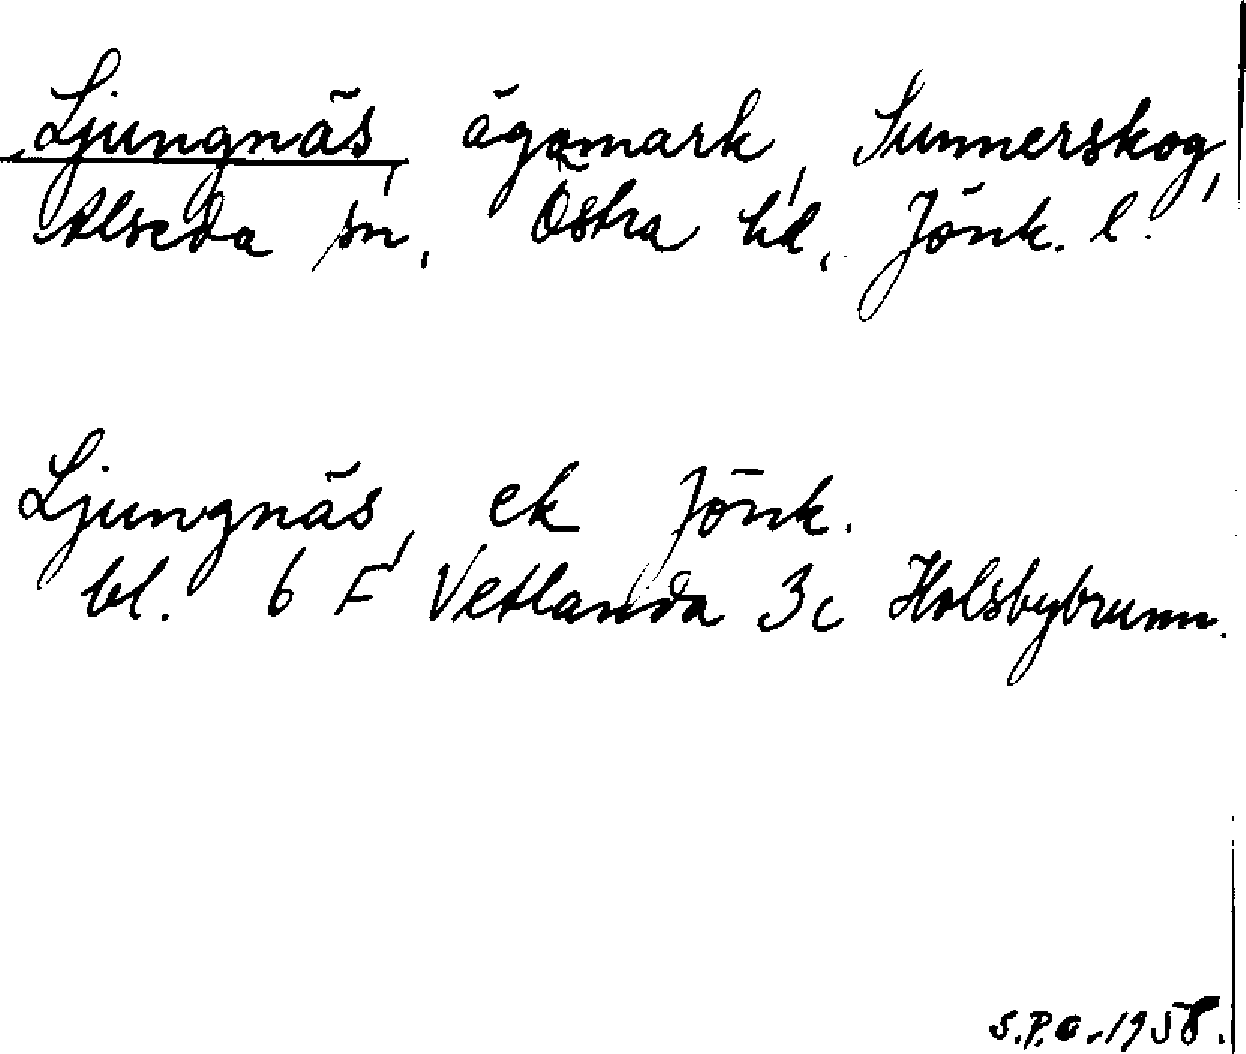 Ljungnäs, ägomark, Sunnerskog,
Alseda sn, Östra hd, Jönk. l.
Ljungnäs, ek Jönk.
bl. 6 F Vetlanda 3c Holsbybrunn.
S.P.O.-1958.